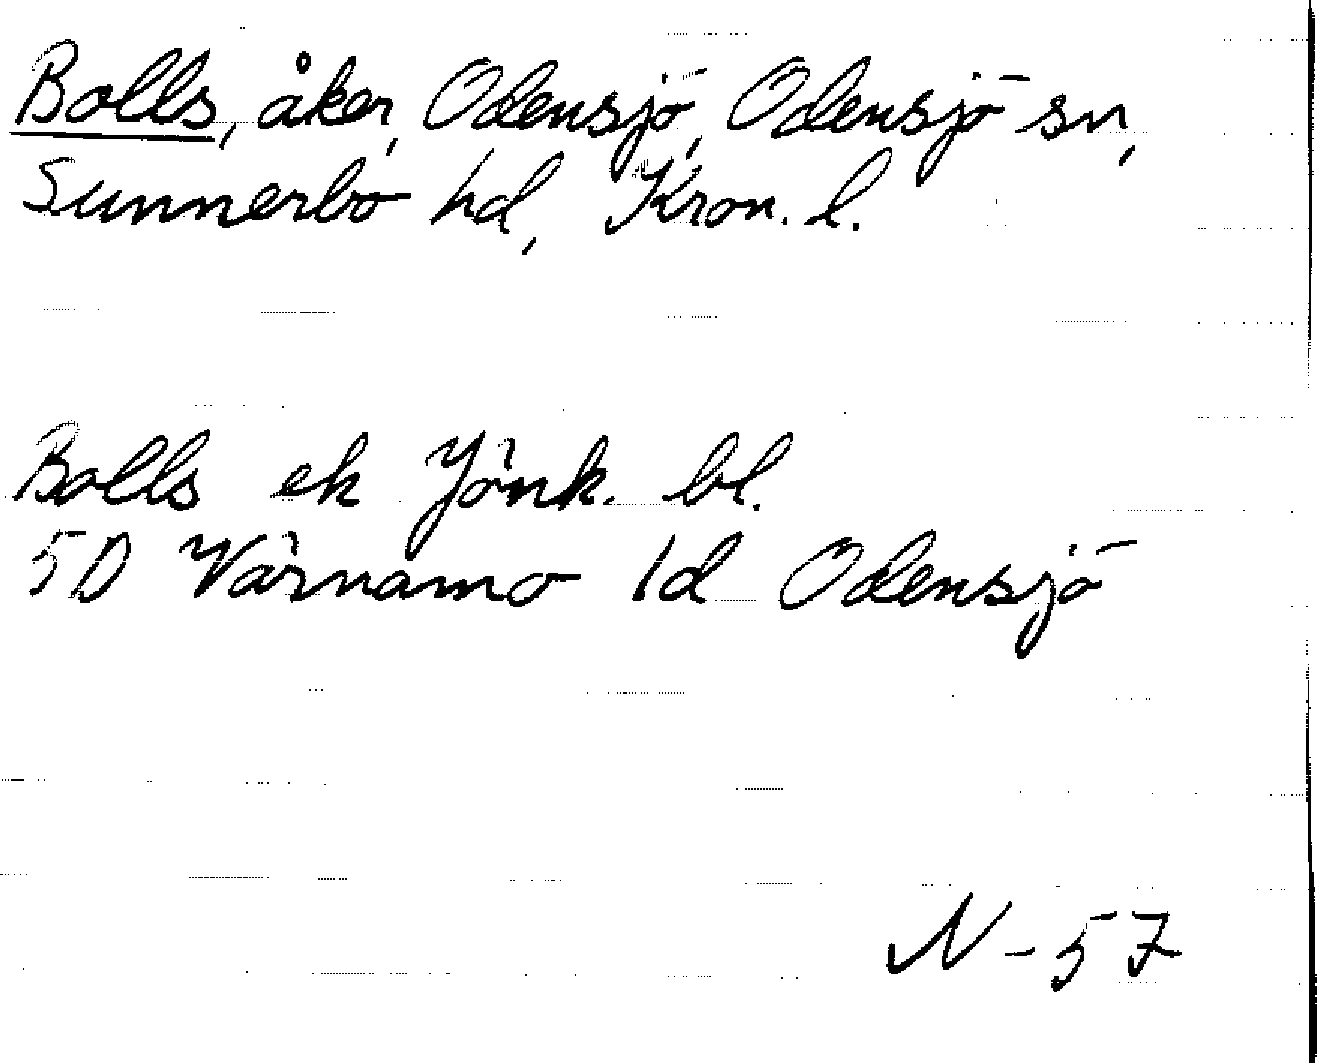 Bolls, åker, Odensjö, Odensjö sn,
Sunnerbo hd, Kron. l.
Bolls ek Jönk. bl.
5D Värnamo 1d Odensjö
N-57